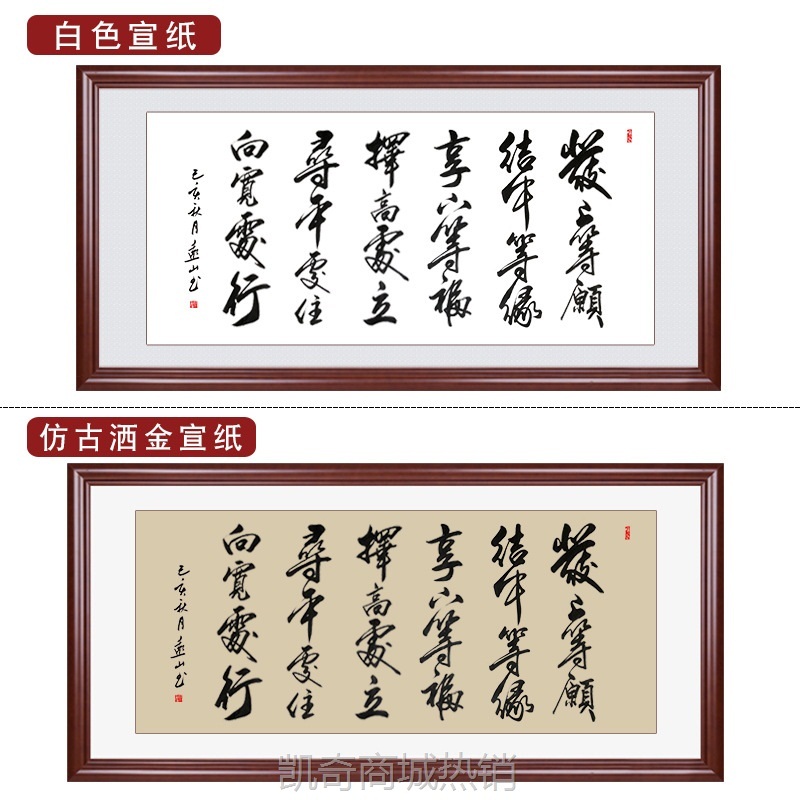 白色宣纸
發上等願
结中等缘
享下等福
擇高處立
尋平處住
向寬處行
己亥秋月
仿古洒金宣纸
發上等願
结中等缘
享下等福
擇高處立
尋平處住
向寬處行
己亥秋月
凯奇商城热销